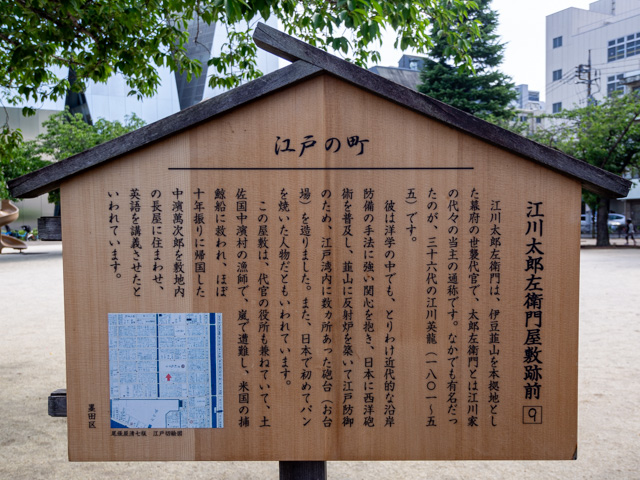 江戸の町
江川太郎左衛門屋敷跡前 9
江川太郎左衛門は、伊豆韮山を本拠地とし
た幕府の世襲代官で、太郎左衛門とは江川家
の代々の当主の通称です。なかでも有名だっ
たのが、三十六代の江川英龍（一八〇一～五
五）です。
彼は洋学の中でも、とりわけ近代的な沿岸
防備の手法に強い関心を抱き、日本に西洋砲
術を普及し、韮山に反射炉を築いて江戸防御
のため、江戸湾内に数ヵ所あった砲台（お台
場）を造りました。また、日本で初めてパン
を焼いた人物だともいわれています。
この屋敷は、代官の役所も兼ねていて、土
佐国中演村の漁師で、嵐で遭難し、米国の捕
鯨船に救われ、ほぼ
十年振りに帰国した
中演萬次郎を敷地内
の長屋に住まわせ、
英語を講義させたと
いわれています。
尾張屋清七板 江戸切絵図
墨田区